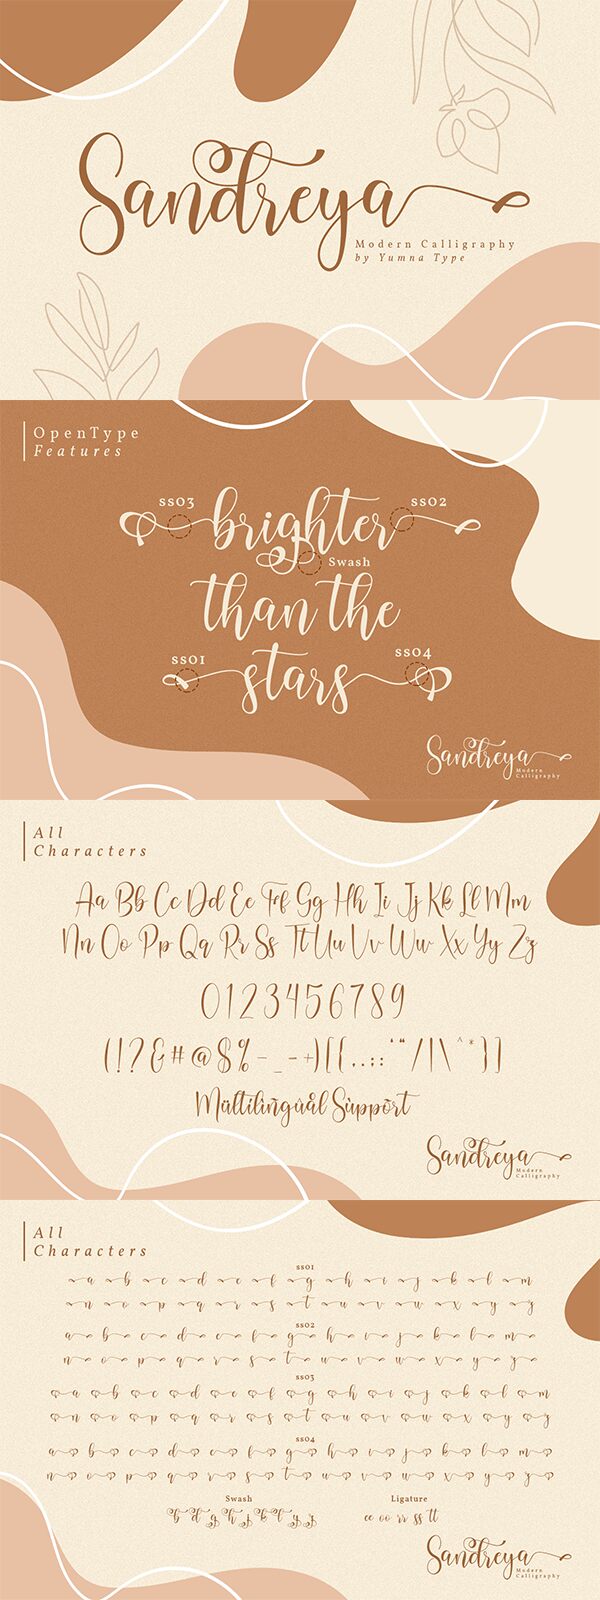 Sandreya
Modern Calligraphy
by Yumna Type
OpenType
Features
ss03
ss02
brighter
Swash
than the
ss01
ss04
stars
Sandreya
Modern
Calligraphy
All
Characters
Aa Bb Cc Dd Ee Ff Gg Hh Ii Jj Kk Ll Mm
Nn Oo Pp Qq Rr Ss Tt Uu Vv Ww Xx Yy Zz
0123456789
Sandreya
Modern
Calligraphy
All
Characters
ss01
a b c d e f g h i j k l m
n o p q r s t u v w x y z
ss02
a b c d e f g h i j k l m
n o p q r s t u v w x y z
ss03
a b c d e f g h i j k l m
n o p q r s t u v w x y z
ss04
a b c d e f g h i j k l m
n o p q r s t u v w x y z
Swash
Ligature
ee oo rr ss tt
Sandreya
Modern
Calligraphy